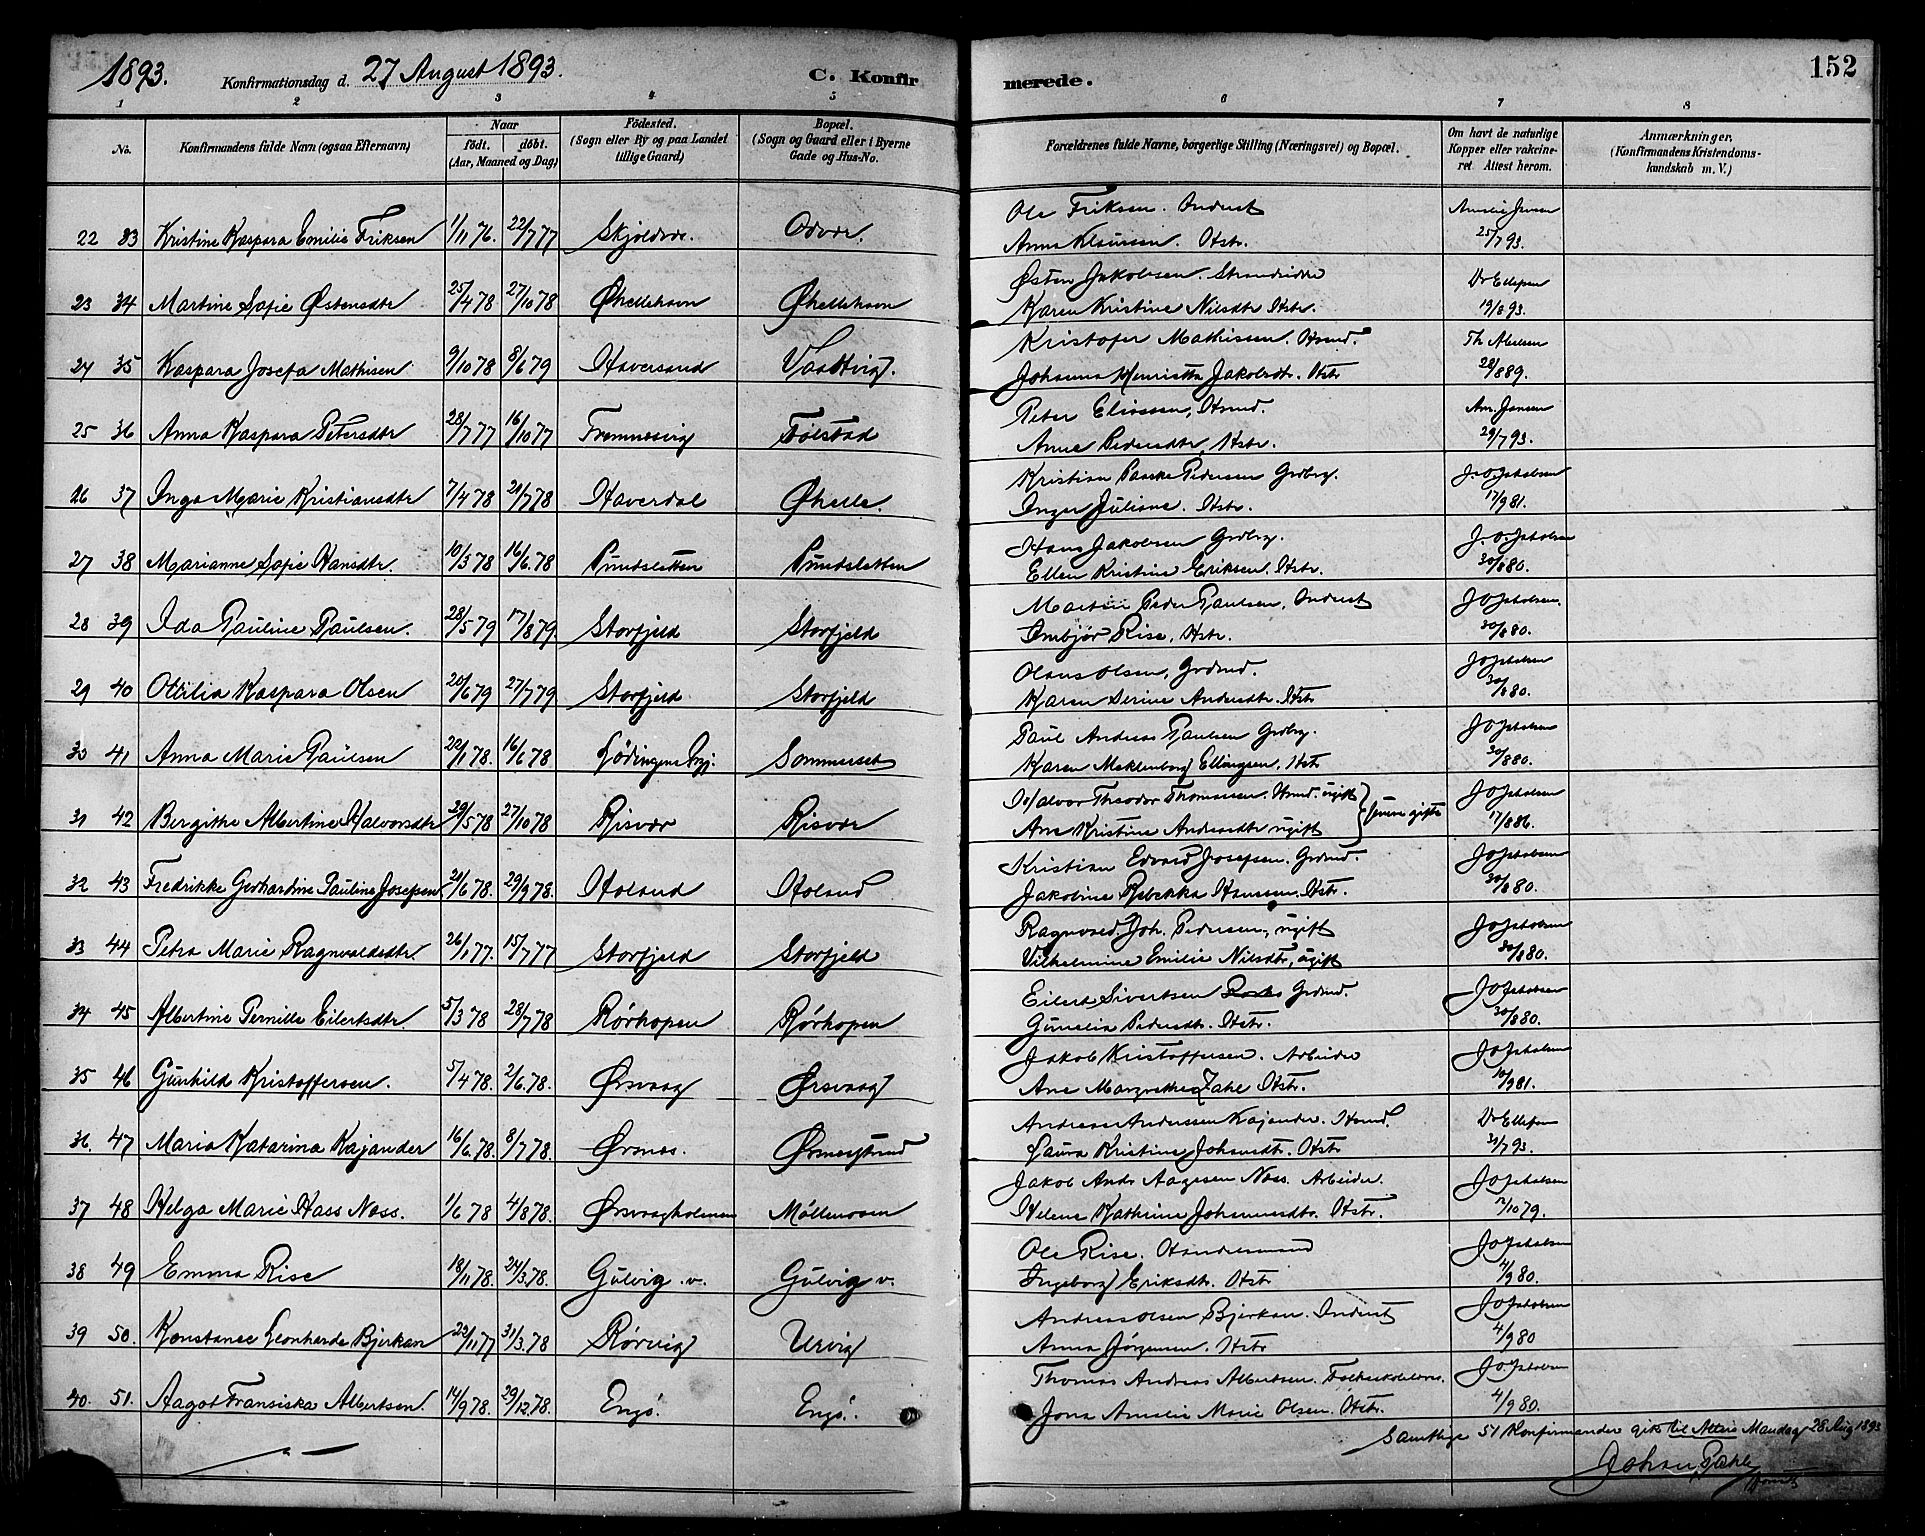 1893. Konfirmationsdag d. 27 August 1893. C. Konfir merede. 152
1 2 3 4 5 6 7 8
No. Konfirmandens fulde Navn (ogsaa Efternavn) Naar födt. döbt. (Aar, Maaned og Dag) Födested. (Sogn eller By og paa Landet tillige Gaard) Bopæl. (Sogn og Gaard eller i Byerne Gade og Hus-No. Forældrenes fulde Navne, borgerlige Stilling (Næringsvei) og Bopæl. Om havt de naturlige Kopper eller vakcineret Attest herom. Anmærkninger. (Konfirmandens Kristendomskundskab m. V.)
22 33 Kristine Kaspara Emilie Friksen 1/11 76. 22/7 77 Odvær. Ole Friksen. Inderst
Anna Klausen. Hstr. 25/7 93.
23 34 Martine Sofie Østensdtr 25/4 78 27/10 78 Øksnehavn Østen Jakobsen. Strandsidder
Karen Kristine Nilsdtr Hstr. 19/8 93.
24 35 Kaspara Josefa Mathisen 9/10 78 8/6 79 Haversand Kristofer Mathissen. Hsmd.
Johanna Henrietta Jakobsdtr. Hstr 28/8 89.
25 36 Anna Kaspara Petersdtr 28/7 77 16/10 77 Fremnesvig Følstad Peter Eliassen, Hsmd. Am. Jensen
Anne Pedersdtr, Hstr. 29/7 93.
26 37 Inga Marie Kristiansdtr 7/4 78 21/7 78 Haverdal Kristian Paaske Pedersen Grdbrg. J. O. Jakobsen
Inger Juliane. Hstr. 17/9 81.
27 38 Marianne Sofie Hansdtr. 10/3 78 16/6 78 Pundsletten Pundsletten Hans Jakobsen Grdbrg. J. O. Jakobsen
Ellen Kristine Eriksen. Hstr. 30/8 80.
28 39 Ida Pauline Paulsen. 28/5 79 17/8 79 Storfjeld Storfjeld Peder Paulsen, Inderst J O Jakobsen.
Rise, Hstr. 30/8 80.
29 40 Otilia Kaspara Olsen 20/6 79 27/7 79 Storfjeld Storfjeld Olaus Olsen, Grdmd. J O Jakobsen
Karen Andersdtr. Hstr 30/8 80.
30 41 Anna Marie Paulsen 22/1 78. 16/6 78 Lødingens Prgj. Sommerset Paul Andreas Paulsen Grdbrg. J O Jakobsen
Karen Meklenborg Ellingsen. Hstr 30/8 80.
31 42 Bergithe Albertine Halvorsdtr 29/5 78 27/10 78 Risvær Risvær Halvor Theodor Thomassen. Hsmd. ugift J O Jakobsen
Ane Kristine Andersdtr ugift } senere gifte 17/8 86.
32 43 Fredrikke Gerhardine Pauline Josefsen 21/6 78. 29/9 78. Holand Holand Kristian Edvard Josefsen. Grdmd. J O Jakobsen
Jakobine Rebekka Hanssen. Hstr. 30/8 80.
33 44 Petra Marie Ragnvaldsdtr 26/1 77. 15/7 77 Storfjeld Storfjeld Joh. Pedersen, ugift J O Jakobsen
Vilhelmine Emilie Nilsdtr, ugift 30/8 80.
34 45 Albertine Pernille Eilertsdtr. 5/3 78 28/7 78 Rørhopen Rørhopen Eilert Sivertsen Grdmd. J O Jakobsen
Gunelia Pedersdtr. Hstr. 30/8 80.
35 46 Gunhild Kristoffersen. 5/4 78. 2/6. 78. Ørsvaag Ørsvaag Jakob Kristoffersen. Arbeider J O Jakobsen
Ane Margrethe Zahl Hstr. 10/9 81.
36. 47 Maria Katarina Kajander 16/6. 78. 8/7 78. Ørsnes. Andreas Anderssen Kajander. Hsmd.
Laura Kristine Johansdtr. Hstr 31/7 93.
37 48 Helga Marie Hass Næss. 1/6 78 4/8 78. Ørsvaagholmen Jakob Andr. Aagesen Næss. Arbeider. J O Jakobsen
Helene Kathrine Johannesdtr. Hstr. 12/10 79.
38 49 Emma Rise 18/11 78. 24/3. 78. Gulvig v. Gulvig v. Ole Rise. Handelsmand J O Jakobsen
Ingeborg Eriksdtr. Hstr 4/9 80.
39 50. Konstance Leonharde Bjerkan 22/11 77 31/3. 78 Rørvig Urvig Andreas Olsen Bjerkan. Inderst J O Jakobsen
Anna Jørgensen. Hstr 4/9 80
40. 51. Aagot Fransiska Albertsen. 14/9 78. 29/12. 78. Engø. Engø. Thomas Andreas Albertsen. Folkeskolelærer. J. O. Jakobsen
Jona Amalie Marie Olsen. Hstr. 4/9 80.
Samtlige 51 Konfirmander gik til Alters Mandag 28 Aug 1893
Johan